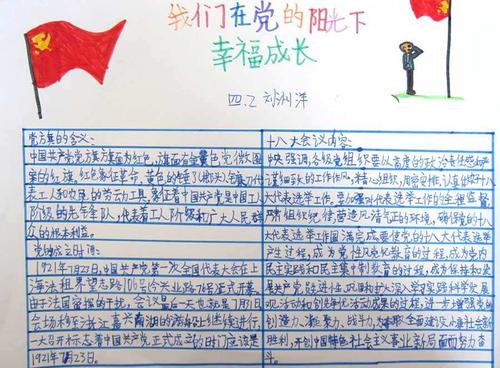 我们在党的阳光下
幸福成长
四.2 刘洲洋
党旗的含义:
中国共产党党旗旗面为红色,旗面有金黄色党徽图
案的红旗。红色象征革命,黄色的锤子、镰刀代
表工人和农民的劳动工具,象征着中国共产党是中国工人
阶级的先锋队,代表着工人阶级和广大人民群
众的根本利益。
党的成立时间:
1921年7月22日,中国共产党第一次全国代表大会在上
海法租界望志路106号(今兴业路76号)正式开幕。
由于法国密探的干扰,会议最后一天也就是7月31日
会场移至浙江嘉兴南湖的游船上继续进行
一大召开标志着中国共产党正式成立的时间应该是
1921年7月23日。
十八大会议内容:
中央强调,各级党组织要以高度的政治责任感
谨细致的工作作风,精心组织,周密安排,认真做好十八
大代表选举工作。要加强对代表选举工作的全程监督
严肃组织纪律,营造风清气正的环境,确保党的十八
大代表选举工作圆满完成,要使党的十八大代表选举
产生过程,成为党性党风党纪教育的过程,成为党内
民主实践和民主集中制教育的过程,成为保持和发
展共产党员先进性、巩固和扩大深入学习实践科学发展
观活动和创先争优活动成果的过程,进一步增强党的
创造力、凝聚力、战斗力,为夺取全面建设小康社会新
胜利,开创中国特色社会主义事业新局面而努力奋
斗。